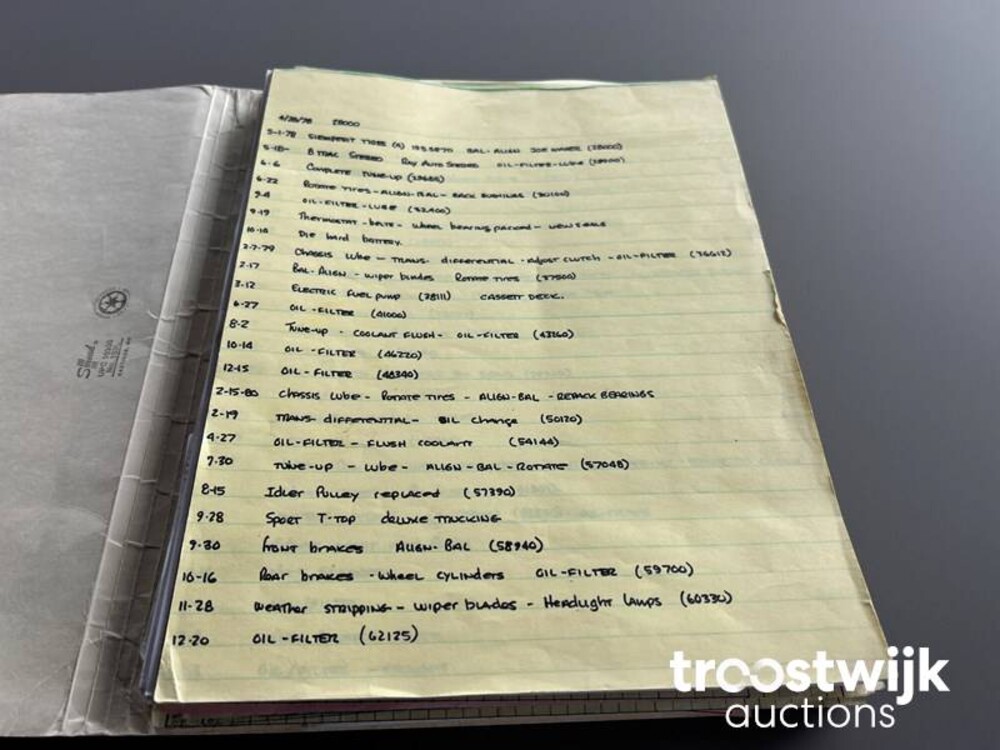 4/28/78 28000
5-1-78 SIEMPERIT TIRES (4) BAL-ALIGN (28000)
5-18- 8 TRAC STEREO Ray Auto Stereo OIL-FILTER-LUBE
6-6 COMPLETE TUNE-UP
6-22 ROTATE TIRES-ALIGN-BAL- (30100)
9-4 OIL-FILTER-LUBE (32400)
9-19 Thermostat - belts - Wheel bearing packed - NEW SEALS
10-10 Die hard battery.
2-7-79 Chassis Lube - TRANS. differential - Adjust clutch - OIL-FILTER (36612)
2-17 Bal-Align - wiper blades Rotate tires (37500)
3-12 ELECTRIC FUEL PUMP (38111) CASSETT DECK.
6-27 OIL-FILTER (41000)
8-2 Tune-up - COOLANT FLUSH - OIL-FILTER (43260)
10-14 OIL-FILTER (46220)
12-15 OIL-FILTER (48340)
2-15-80 Chassis Lube - Rotate tires - ALIGN-BAL - REPACK BEARINGS
2-19 TRANS- differential - OIL change (50120)
4-27 OIL-FILTER - FLUSH COOLANT (54144)
7-30 TUNE-UP - Lube - ALIGN-BAL-ROTATE (57048)
8-15 Idler Pulley replaced (57390)
9-28 Sport T-TOP deluxe TRUCKING
9-30 front brakes ALIGN-BAL (58940)
10-16 Rear brakes - Wheel cylinders OIL-FILTER (59700)
11-28 Weather STRIPPING - wiper blades - Headlight lamps (60330)
12-20 OIL-FILTER (62125)
troostwijk
auctions